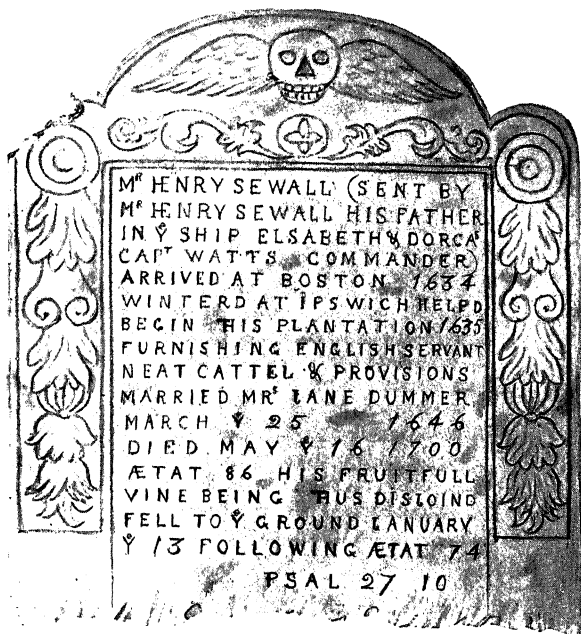 Mr HENRY SEWALL (SENT BY
Mr HENRY SEWALL HIS FATHER
IN Ye SHIP ELSABETH & DORCAS
CAPT WATTS COMMANDER)
ARRIVED AT BOSTON 1634
WINTERD AT IPSWICH HELPD
BEGIN THIS PLANTATION 1635
FURNISHING ENGLISH SERVANTS
NEAT CATTEL & PROVISIONS
MARRIED MRS IANE DUMMER
MARCH Ye 25 1646
DIED MAY Ye 16 1700
ÆTAT 86 HIS FRUITFULL
VINE BEING THUS DISIOIND
FELL TO Ye GROUND IANUARY
Ye 13 FOLLOWING ÆTAT 74
PSAL 27 10